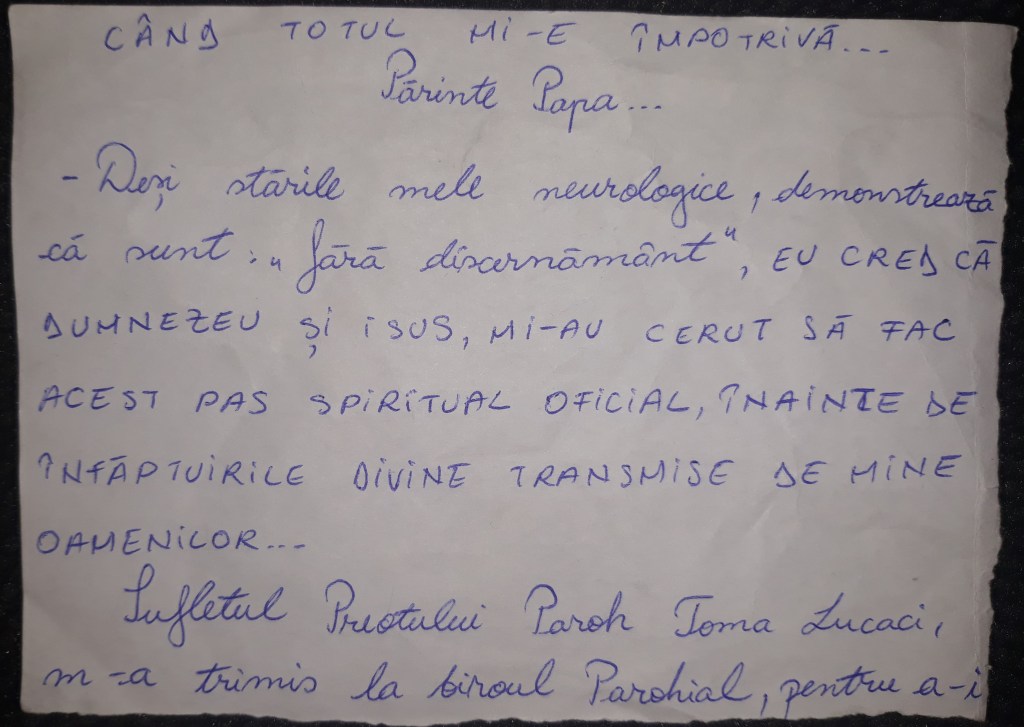 CÂND TOTUL MI-E ÎMPOTRIVĂ...
Părinte Papa...
- Deși stările mele neurologice, demonstrează
că sunt: „fără discernământ", EU CRED CĂ
DUMNEZEU ȘI ISUS, MI-AU CERUT SĂ FAC
ACEST PAS SPIRITUAL OFICIAL, ÎNAINTE DE
ÎNFĂPTUIRILE DIVINE TRANSMISE DE MINE
OAMENILOR...
Sufletul Preotului Paroh Toma Lucaci,
m-a trimis la biroul Parohial, pentru a-i